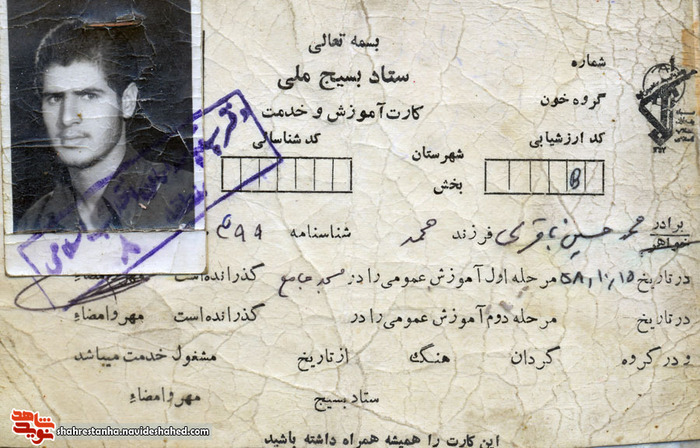 بسمه تعالی
ستاد بسیج ملی
کارت آموزش و خدمت
شماره
گروه خون
کد ارزشیابی
B
شهرستان
بخش
کد شناسائی
برادر خواهر محمد حسین باقری فرزند محمد شناسنامه ۶۹۹
در تاریخ ۵۸/۱۰/۱۵ مرحله اول آموزش عمومی را در مسجد جامع گذرانده است مهر و امضاء
در تاریخ مرحله دوم آموزش عمومی را در گذرانده است مهر و امضاء
و در گروه گردان هنگ از تاریخ مشغول خدمت میباشد
ستاد بسیج مهر و امضاء
این کارت را همیشه همراه داشته باشید
نوید شاهد
shahrestanha.navideshahed.com